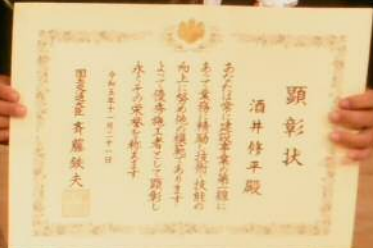 顕彰状
酒井修平殿
あなたは常に建設事業の第一線に
あって業務に精励し技術・技能の
向上に努め他の模範であります
よって優秀施工者として顕彰し
永くその栄誉を称えます
令和五年十一月二十一日
国土交通大臣 斉藤鉄夫